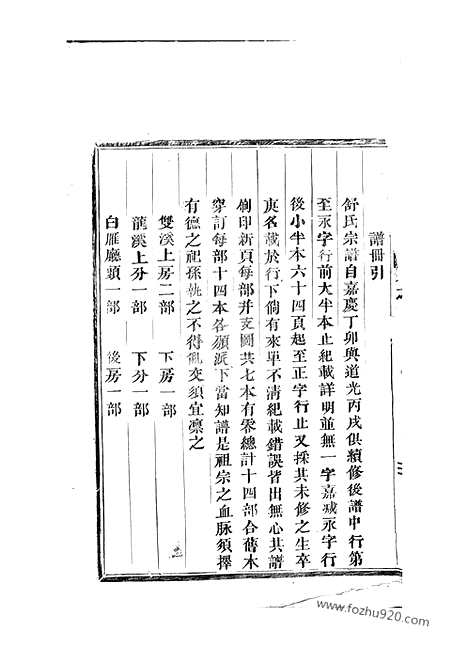 譜冊引
舒氏宗譜自嘉慶丁卯與道光丙戌俱續修後譜中行第
至永字行前大半本止紀載詳明並無一字嘉永字行
後小半本六十四頁起至正字行止又採其未修之生卒
庚名載於行下倘有來單不清紀載錯誤皆出無心其譜
刷印新頁每部并支圖共七本有零總計十四部合舊本
穿訂每部十四本各領派下當知譜是祖宗之血脉須擇
有德之祀孫執之不得亂交須宜凛之
雙溪上房二部 下房一部
龍溪上分一部 下分一部
白雁廳頭一部 後房一部
www.fozhu920.com